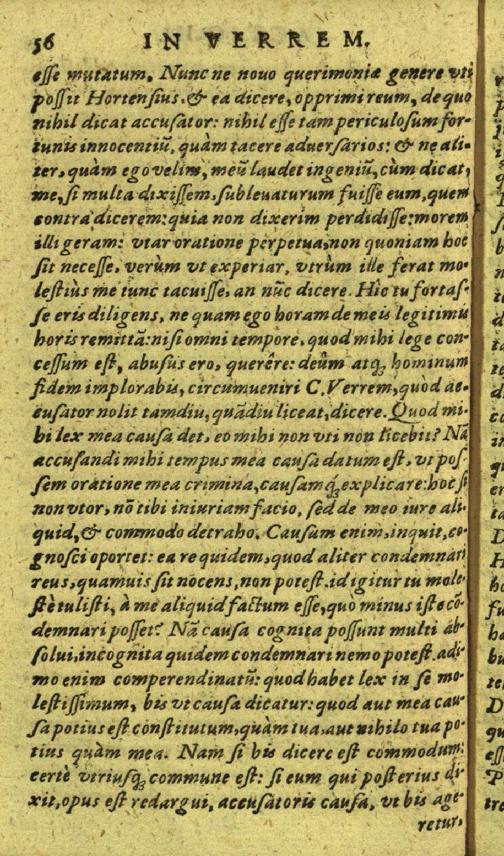 56 IN VERREM.
esse mutatum. Nunc ne nouo querimoniæ genere vti
possit Hortensius. & ea dicere, opprimi reum, de quo
nihil dicat accusator: nihil esse tam periculosum for-
tunis innocentiũ, quàm tacere aduersarios: & ne ali-
ter, quàm ego velim, meũ laudet ingeniũ, cùm dicat,
me, si multa dixissem, subleuaturum fuisse eum, quem
contra dicerem: quia non dixerim perdidisse: morem
illi geram: vtar oratione perpetua, non quoniam hoc
sit necesse, verùm vt experiar, vtrùm ille ferat mo-
lestiùs me tunc tacuisse, an nũc dicere. Hîc tu fortas-
se eris diligens, ne quam ego horam de meis legitimis
horis remittã: nisi omni tempore, quod mihi lege con-
cessum est, abusus ero, querêre: deûm atq; hominum
fidem implorabis, circumueniri C. Verrem, quod ac-
cusator nolit tamdiu, quãdiu liceat, dicere. Quod mi-
hi lex mea causa det, eo mihi non vti non licebit? Nã
accusandi mihi tempus mea causa datum est, vt pos-
sem oratione mea crimina, causamq; explicare: hoc si
non vtor, nõ tibi iniuriam facio, sed de meo iure ali-
quid, & commodo detraho. Causam enim, inquit, co-
gnosci oportet: ea re quidem, quod aliter condemnari
reus, quamuis sit nocens, non potest. id igitur tu mole-
stè tulisti, à me aliquid factum esse, quò minus iste cõ-
demnari posset? Nã causa cognita possunt multi ab-
solui, incognita quidem condemnari nemo potest. adi-
mo enim comperendinatũ: quod habet lex in se mo-
lestissimum, bis vt causa dicatur: quod aut mea cau-
sa potius est constitutum, quàm tua, aut nihilo tua po-
tius quàm mea. Nam si bis dicere est commodum:
certè vtriusq; commune est: si eum qui posterius di-
xit, opus est redargui, accusatoris causa, vt bis age-
retur,